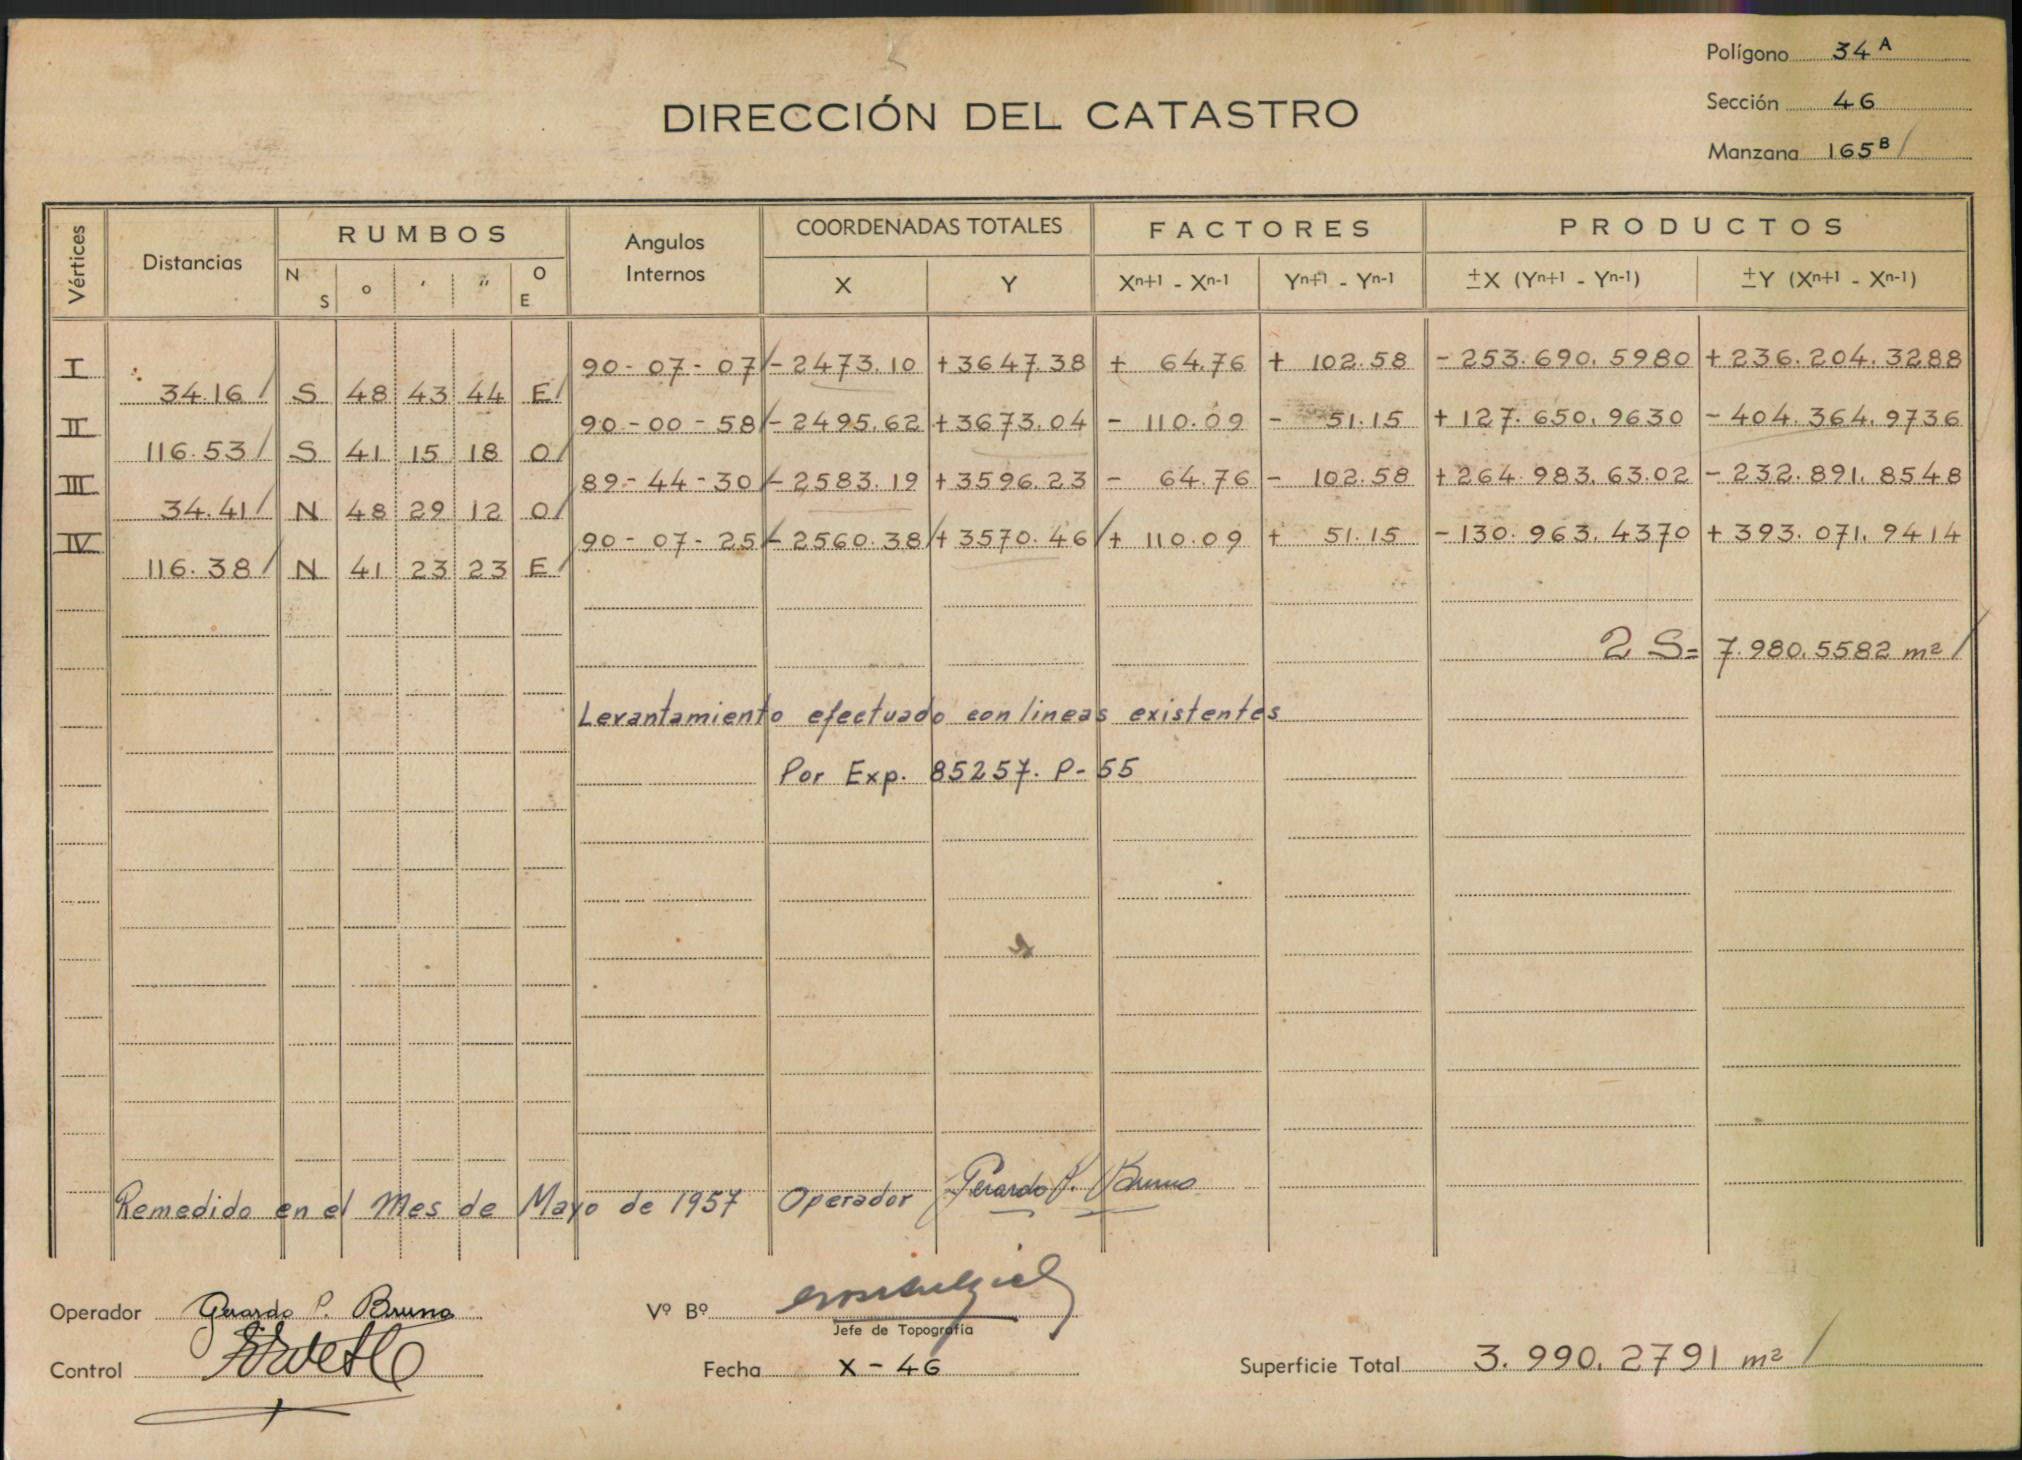 Polígono 34 A
Sección 46
Manzana 165 B /
DIRECCIÓN DEL CATASTRO
Vértices Distancias RUMBOS Angulos Internos COORDENADAS TOTALES FACTORES PRODUCTOS
N S o ' " O E X Y Xn+1 - Xn-1 Yn+1 - Yn-1 ±X (Yn+1 - Yn-1) ±Y (Xn+1 - Xn-1)
I 90-07-07 / - 2473.10 + 3647.38 + 64.76 + 102.58 - 253.690.5980 + 236.204.3288
34.16 / S 48 43 44 E /
II 90-00-58 / - 2495.62 + 3673.04 - 110.09 - 51.15 + 127.650.9630 - 404.364.9736
116.53 / S 41 15 18 O /
III 89-44-30 / - 2583.19 + 3596.23 - 64.76 - 102.58 + 264.983.63.02 - 232.891.8548
34.41 / N 48 29 12 O /
IV 90-07-25 / - 2560.38 / + 3570.46 / + 110.09 + 51.15 - 130.963.4370 + 393.071.9414
116.38 / N 41 23 23 E /
2 S= 7.980.5582 m2 /
Levantamiento efectuado con lineas existentes
Por Exp. 85257. P-55
Remedido en el Mes de Mayo de 1957 Operador Gerardo P. Bruno
Operador Gerardo P. Bruno Vº Bº
Jefe de Topografía
Control Fecha X-46 Superficie Total 3.990.2791 m2 /